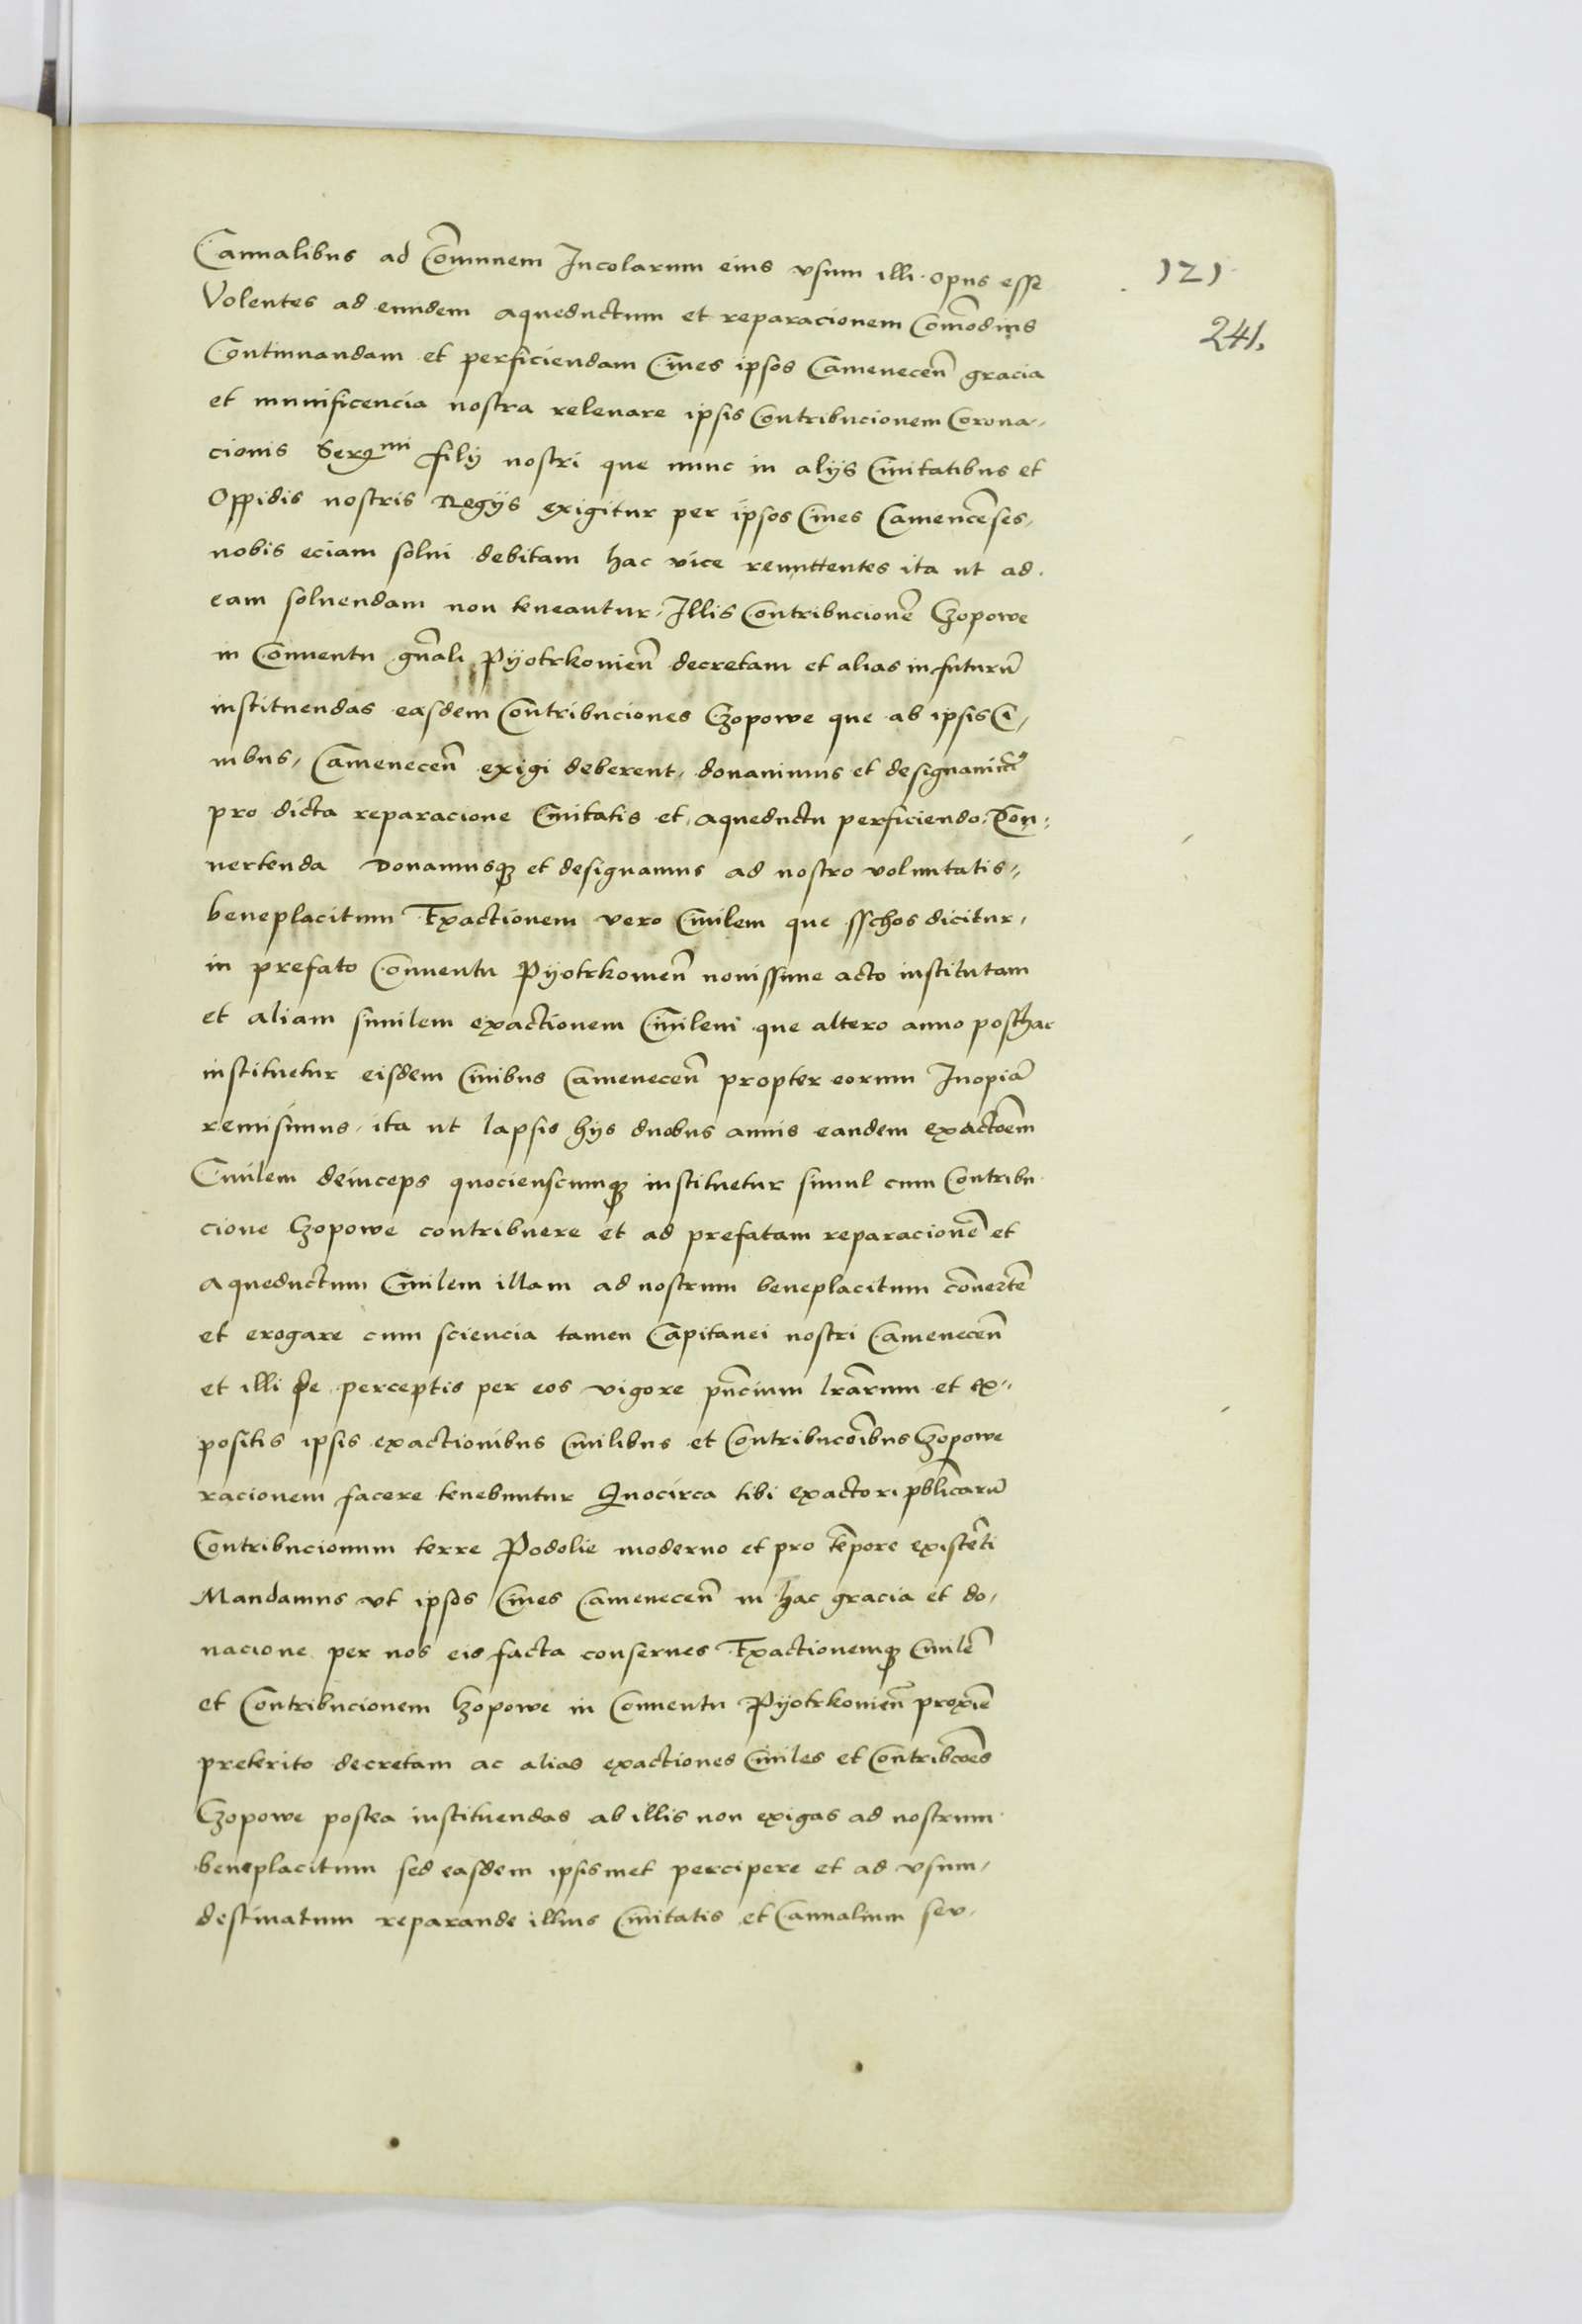 Cannalibus ad Com̃unem Incolarum eius vsum illi opus esse
121
Volentes ad eundem aqueductum et reparacionem Com̃odius
241.
Continuandam et perficiendam Ciues ipsos Camenecen̄ gracia
et munificencia nostra releuare ipsis Contribucionem Corona-
cionis Ser^mi filij nostri que nunc in alijs Ciuitatibus et
Oppidis nostris Regijs exigitur per ipsos Ciues Camencen̄ses
nobis eciam solui debitam hac vice remittentes ita ut ad
eam soluendam non teneantur, Illis Contribucionē Czopowe
in Conuentu gn̄ali Pyotrkouien̄ decretam et alias in futurū
instituendas easdem Contribuciones Czopowe que ab ipsis Ci,
uibus, Camenecen̄ exigi deberent, donauimus et designauim9
pro dicta reparacione Ciuitatis et aqueductu perficiendo, Con:
uertenda Donamusq3 et designamus ad nostro voluntatis,,
beneplacitum Exactionem vero Ciuilem que sschos dicitur,
in prefato Conuentu Pyotrkouien̄ nouissime acto institutam
et aliam similem exactionem Ciuilem que altero anno posthac
instituetur eisdem Ciuibus Camenecen̄ propter eorum Inopiā
remisimus, ita ut lapsis hijs duobus annis eandem exactōem
Ciuilem deinceps quocienscumq3 instituetur simul cum Contribu
cione Czopowe contribuere et ad prefatam reparacionē et
Aqueductum Ciuilem illam ad nostrum beneplacitum cōuertē
et erogare cum sciencia tamen Capitanei nostri Camenecen̄
et illi de perceptis per eos vigore pn̄cium lrārum et ex,,
positis ipsis exactionibus Ciuilibus et Contribucōibus Czopowe
racionem facere tenebuntur Quocirca tibi exactori pblicarū
Contribucionum terre Podolie moderno et pro tēpore existēti
Mandamus vt ipsos Ciues Camenecen̄ in hac gracia et do,
nacione per nos eis facta conserues Exactionemq3 Ciuilē
et Contribucionem Czopowe in Conuentu Pyotrkouien̄ proxīe
preterito decretam ac alias exactiones Ciuiles et Contribcōes
Czopowe postea instituendas ab illis non exigas ad nostrum
beneplacitum sed easdem ipsismet percipere et ad vsum,
destinatum reparande illius Ciuitatis et Cannalium seu,